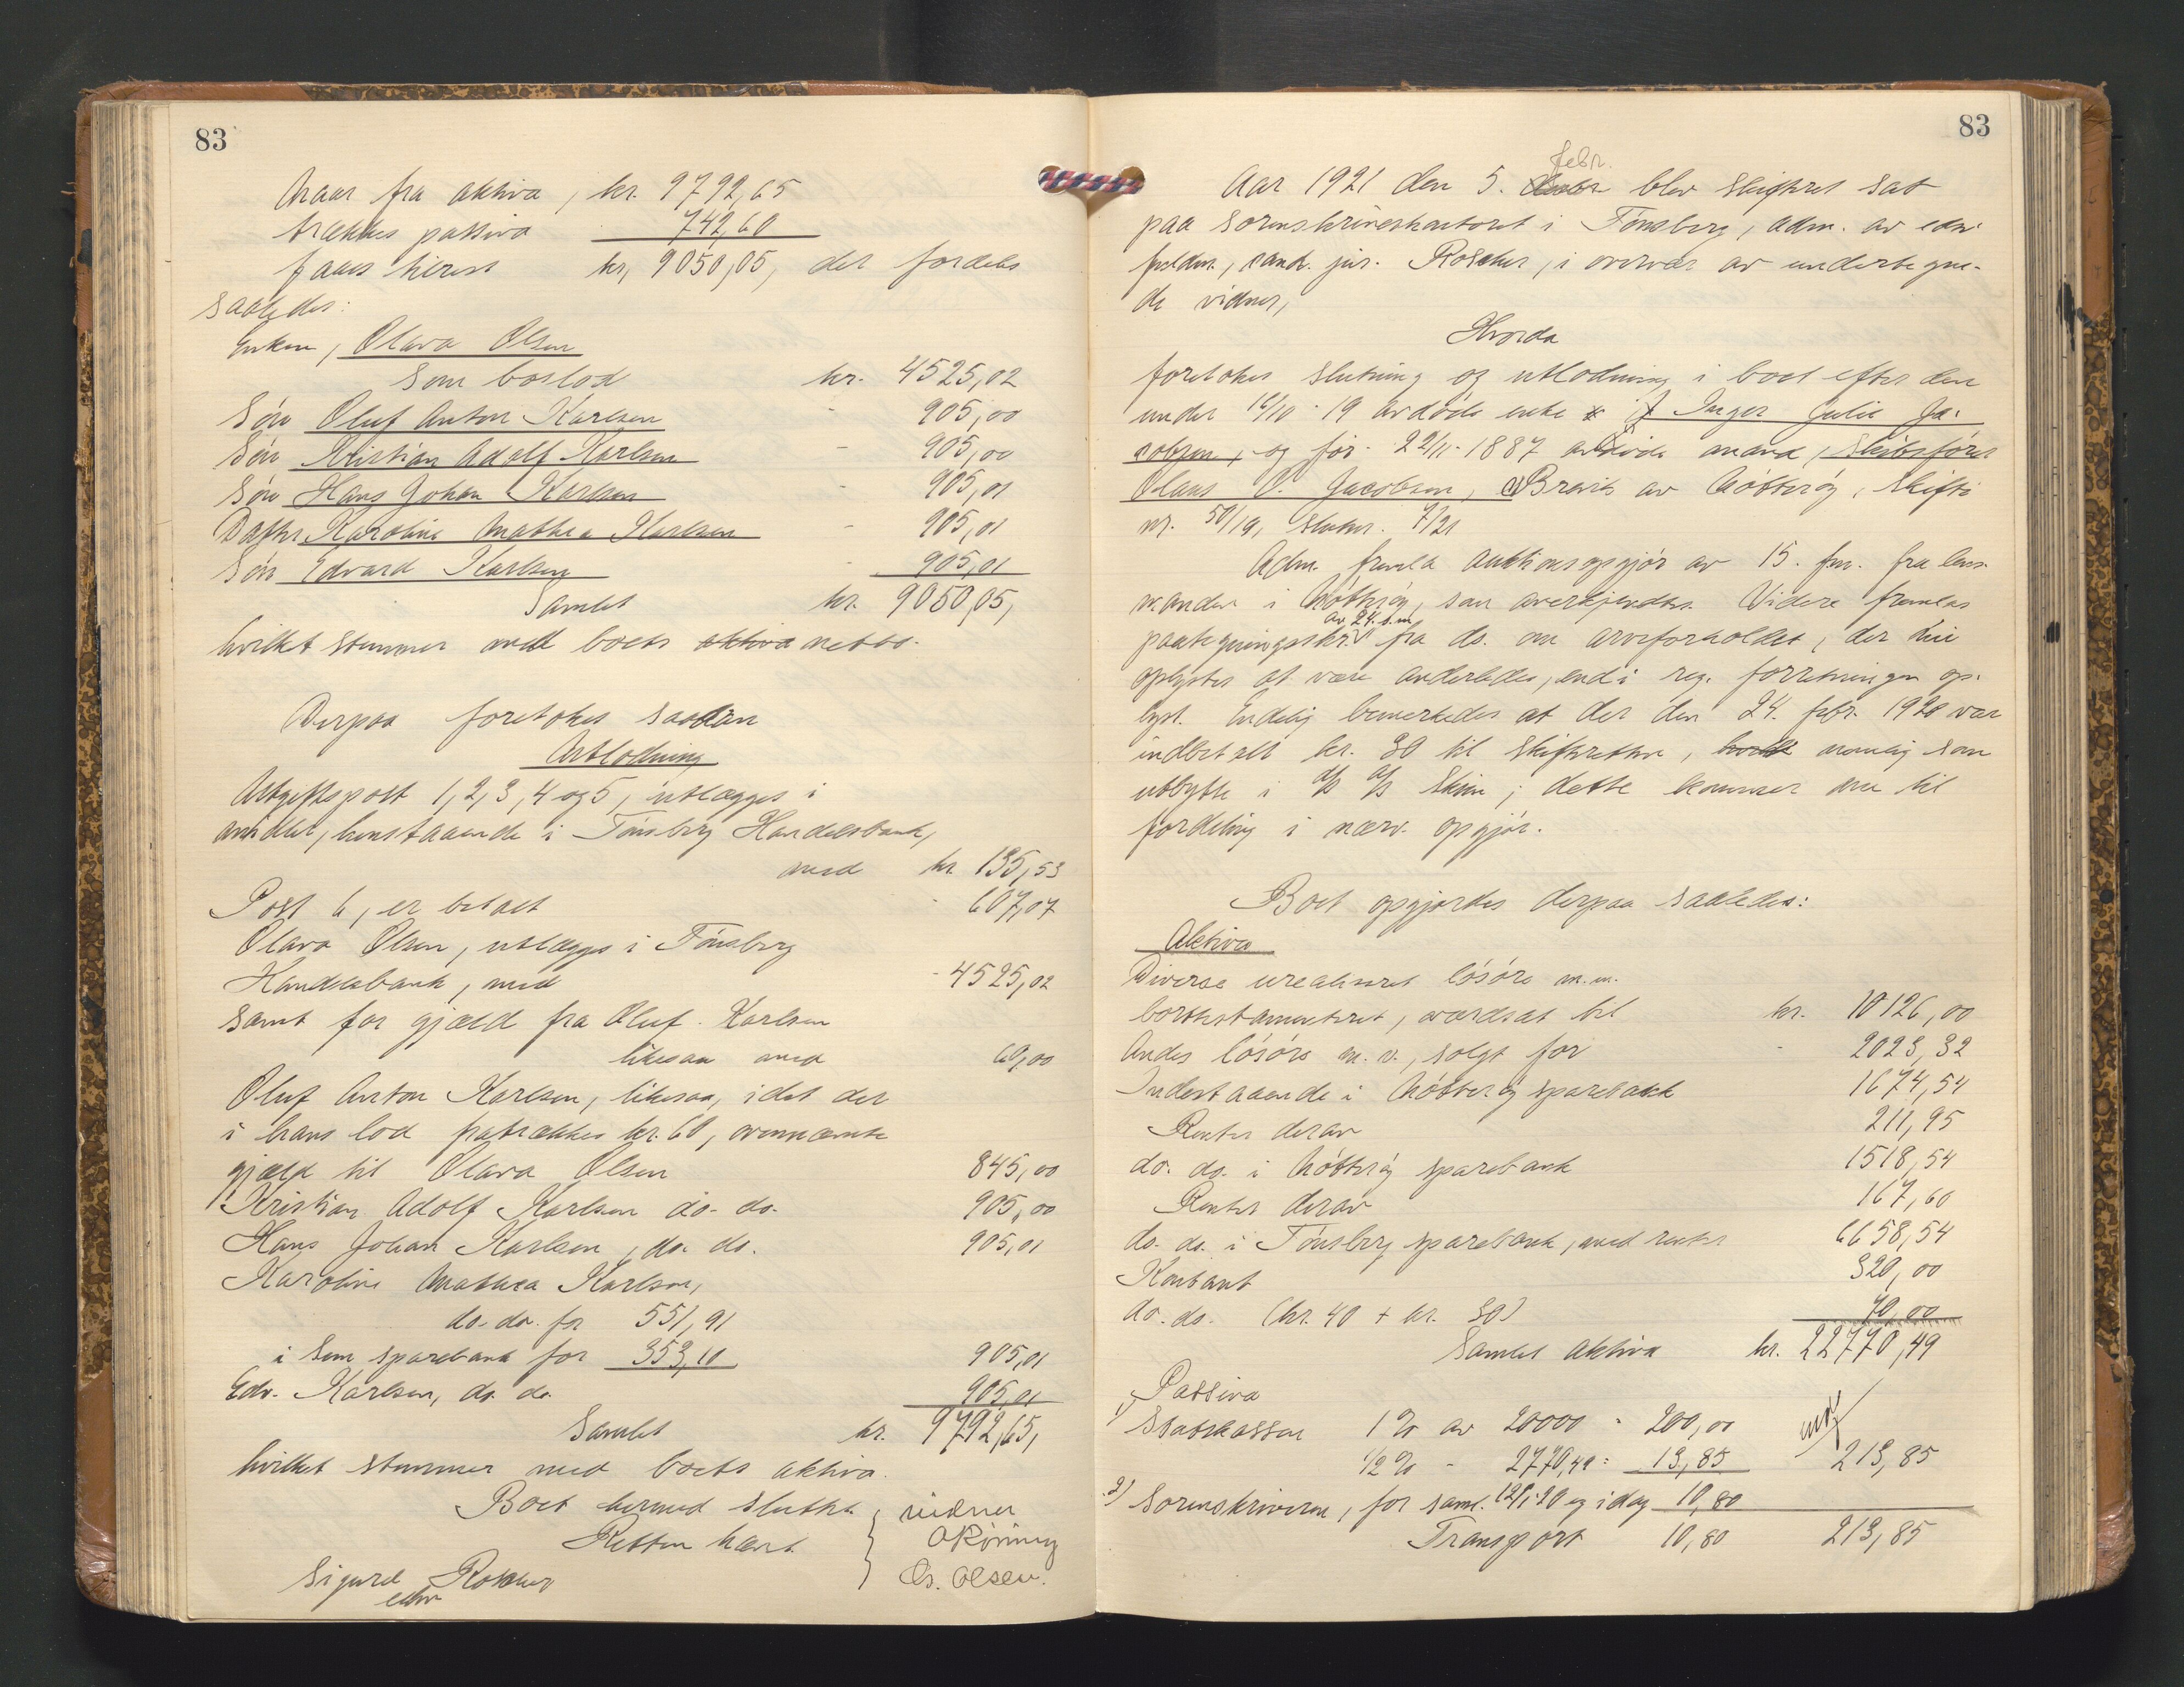 83
Naar fra aktiva, kr. 9792,65
trækkes passiva 742,60
faaes tilrest kr, 9050,05, der fordeles
saaledes:
Enken, Olava Olsen
som boslod kr. 4525,02
Søn Oluf Anton Karlsen - 905,00
Søn Kristian Adolf Karlsen - 905,00
Søn Hans Johan Karlsen - 905,01
Datter Karoline Mathea Karlsen - 905,01
Søn Edvard Karlsen - 905,01
Samlet kr. 9050,05,
hvilket stemmer med boets aktiva netto.
Derpaa foretokes saadan
Utlodning
Utgiftspost 1, 2, 3, 4 og 5, utlægges i
midler, henstaaende i Tønsberg Handelsbank,
med kr. 135,53
Post 6, er betalt - 607,07
Olava Olsen, utlægges i Tønsberg
Handelsbank, med - 4525,02
samt for gjæld fra Oluf Karlsen
likesaa med 60,00
Oluf Anton Karlsen, likesaa, idet der
i hans lod fratrækkes kr. 60, ovennævnte
gjæld til Olava Olsen 845,00
Kristian Adolf Karlsen do. do. 905,00
Hans Johan Karlsen, do. do. 905,01
Karoline Mathea Karlsen,
do. do. for 551,91
i Sem sparebank for 353,10 905,01
Edv. Karlsen, do. do. 905,01
Samlet kr. 9792,65,
hvilket stemmer med boets aktiva.
Boet hermed sluttet.
Retten hævet
Sigurd Roscher
edsv
vidner
O Rønning
Chr. Olsen.
83
Aar 1921 den 5. Febr. blev skifteret sat
paa sorenskriverkontoret i Tønsberg, adm. av edsv.
fuldm., cand. jur. Roscher, i overvær av undertegne-
de vidner,
Hvorda
foretokes slutning og utlodning i boet efter den
under 12/10-19 avdøde enke Inger Julie Ja-
cobsen, og før 22/11-1887 avdøde mand, skibsfører
Olaus O. Jacobsen, Brevik av Nøtterøy, skifte
nr. 50/19, slutnr. 7/21
Adm. fremla auktionsopgjør av 15. f.m. fra lens-
manden i Nøtterøy, som anerkjendtes. Videre fremlas
paategningsskr. av 24. s.m. fra do. om arveforholdet, der bie
oplystes at være anderledes, end i reg. forretningen op-
lyst. Endelig bemerkedes at der den 24. febr. 1920 var
indbetalt kr. 30 til skifteretten, nemlig som
utbytte i d/s A/S Skiu; dette kommer nu til
fordeling i nærv. opgjør.
Boet opgjordes derpaa saaledes:
Aktiva
Diverse urealiseret løsøre m.m.
borttestamenteret, værdsat til kr. 10126,00
Andet løsøre m.v., solgt for - 2023,32
Indestaaende i Nøtterøy sparebank 1674,54
Renter derav 211,95
do. do. i Nøtterøy sparebank 1518,54
Renter derav 167,60
do. do. i Tønsberg sparebank, med renter 6658,54
Kontant 320,00
do. do. (kr. 40 + kr. 30) 70,00
Samlet aktiva kr. 22770,49
Passiva
1) Statskassen 1 % av 20000 = 200,00
1/2 % - 2770,49 = 13,85 213,85
2) Sorenskriveren, for saml. 12/1-20 og idag 10,80
Transport 10,80 213,85